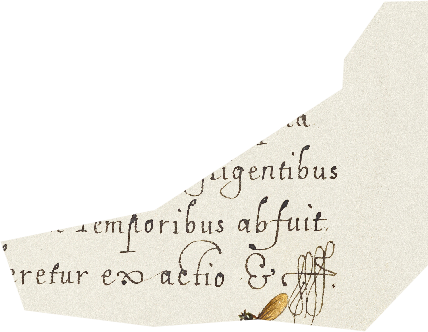 gligentibus
Temporibus abfuit.
eretur exactio &